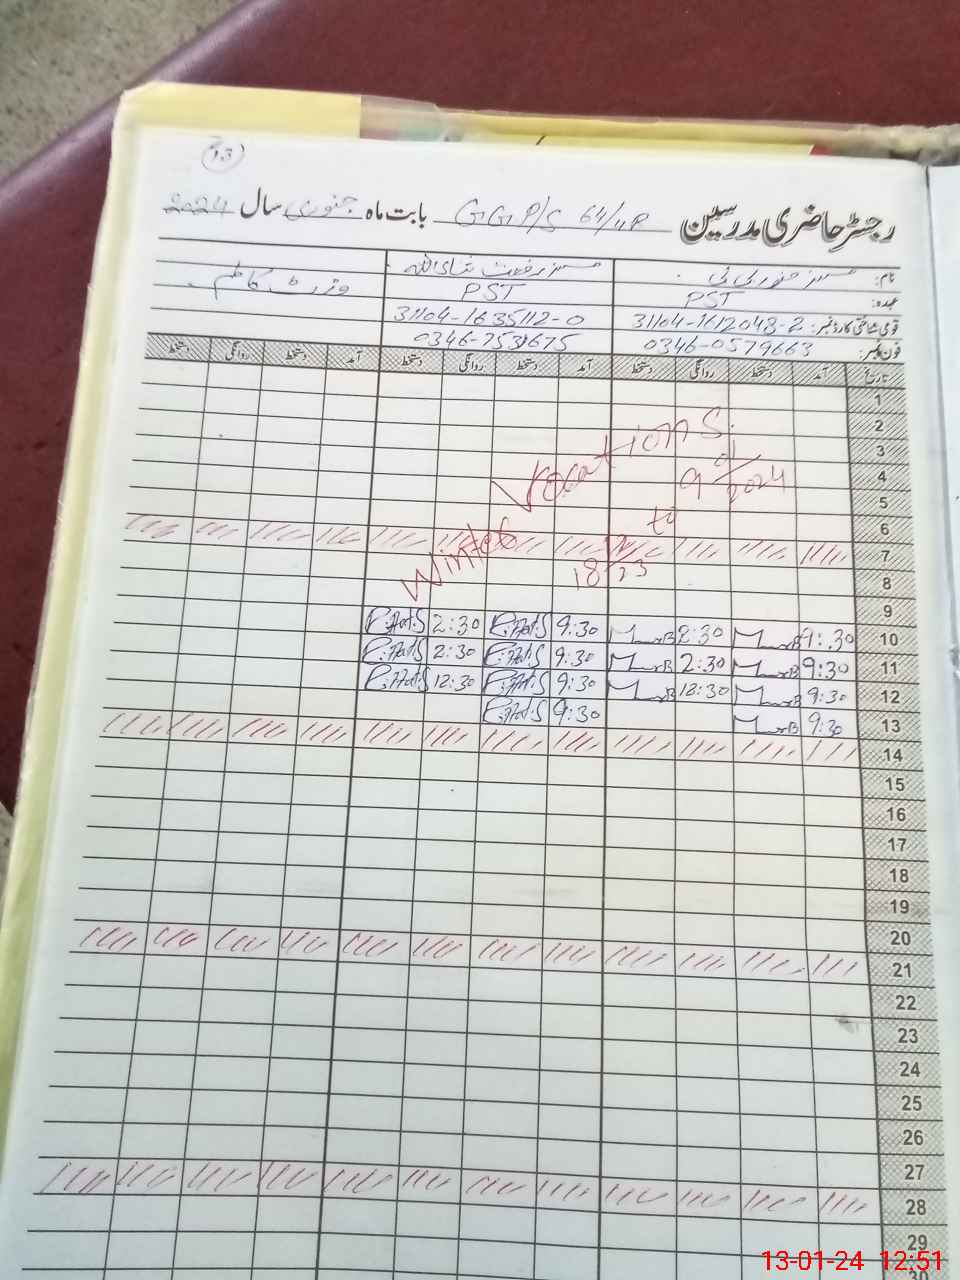 13
رجسٹر حاضری مدرسین GGP/S 64/4P بابت ماہ جنوری سال 2024
نام: مسز حنور بی بی مسز رفعت ثناء اللہ وزٹ کالم
عہدہ: PST PST
قومی شناختی کارڈ نمبر: 31104-1612048-2 31104-1635112-0
فون نمبر: 0346-0579663 0346-7531675
تاریخ آمد دستخط روانگی دستخط آمد دستخط روانگی دستخط آمد دستخط روانگی دستخط
1
2
3
4
5
6
7
8
9
Winter Vocations.
18/12/23 to 9/01/2024
10 9:30 2:30 9:30 2:30
11 9:30 2:30 9:30 2:30
12 9:30 12:30 9:30 12:30
13 9:30 9:30
14
15
16
17
18
19
20
21
22
23
24
25
26
27
28
29
30
13-01-24 12:51